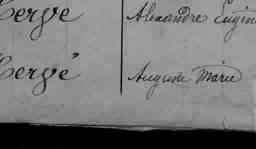 Hervé Alexandre Eugèn
Hervé Auguste Marie